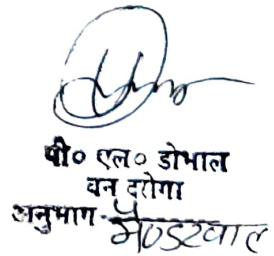 पी० एल० डोभाल
वन दरोगा
अनुभाग-मैण्डरवाल